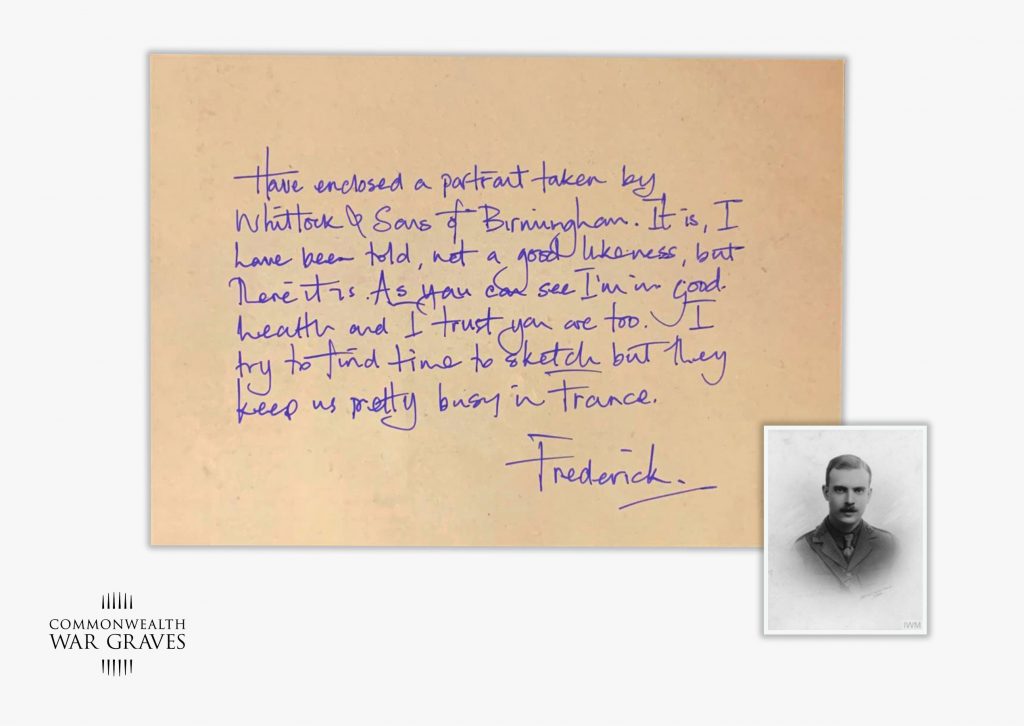 Have enclosed a portrait taken by
Whittock & Sons of Birmingham. It is, I
have been told, not a good likeness, but
there it is. As you can see I'm in good
health and I trust you are too. I
try to find time to sketch but they
keep us pretty busy in France.
Frederick.
IWM
COMMONWEALTH
WAR GRAVES